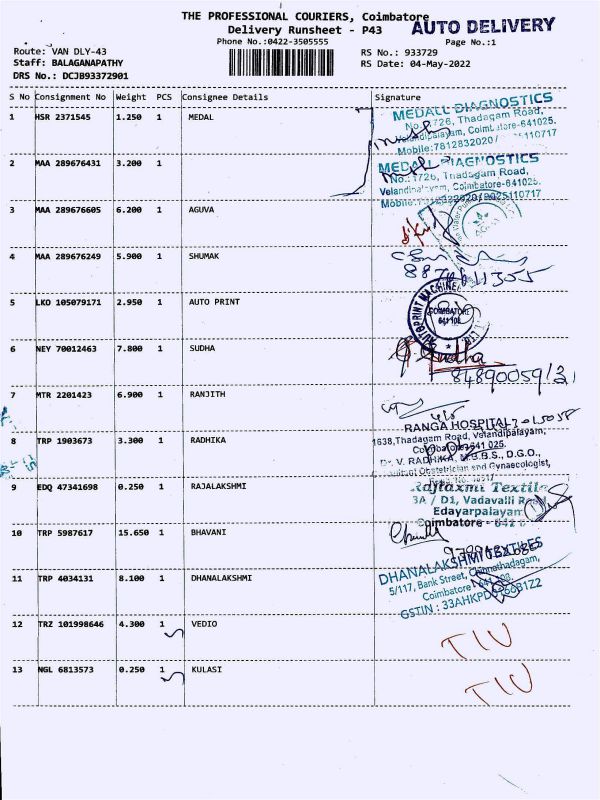 THE PROFESSIONAL COURIERS, Coimbatore
AUTO DELIVERY
Delivery Runsheet - P43
Phone No.:0422-3505555
Page No.:1
Route: VAN DLY-43
RS No.: 933729
Staff: BALAGANAPATHY
RS Date: 04-May-2022
DRS No.: DCJB93372901
S No Consignment No Weight PCS Consignee Details Signature
1 HSR 2371545 1.250 1 MEDAL
MEDALL DIAGNOSTICS
Thadagam Road,
Velandipalayam, 641025.
Mobile:7812832020/
2 MAA 289676431 3.200 1
No.:1726, Thadagam Road,
Coimbatore-641025.
3 MAA 289676605 6.200 1 AGUVA
4 MAA 289676249 5.900 1 SHUMAK
5 LKO 105079171 2.950 1 AUTO PRINT
AUTOPRINT MACHINE
COIMBATORE
6 NEY 70012463 7.800 1 SUDHA
Sudha
7 MTR 2201423 6.900 1 RANJITH
8 TRP 1903673 3.300 1 RADHIKA
RANGA HOSPITAL
1638,Thadagam Road, Velandipalayam,
Coimbatore-641 025.
Dr. V. RADHIKA, M.B.B.S., D.G.O.,
Obstetrician and Gynaecologist,
9 EDQ 47341698 0.250 1 RAJALAKSHMI
3A / D1, Vadavalli
Edayarpalayan
Coimbatore
10 TRP 5987617 15.650 1 BHAVANI
11 TRP 4034131 8.100 1 DHANALAKSHMI
DHANALAKSHMI TEXTILES
5/117, Bank Street, Chinnathadagam,
Coimbatore
GSTIN :
12 TRZ 101998646 4.300 1 VEDIO
13 NGL 6813573 0.250 1 KULASI